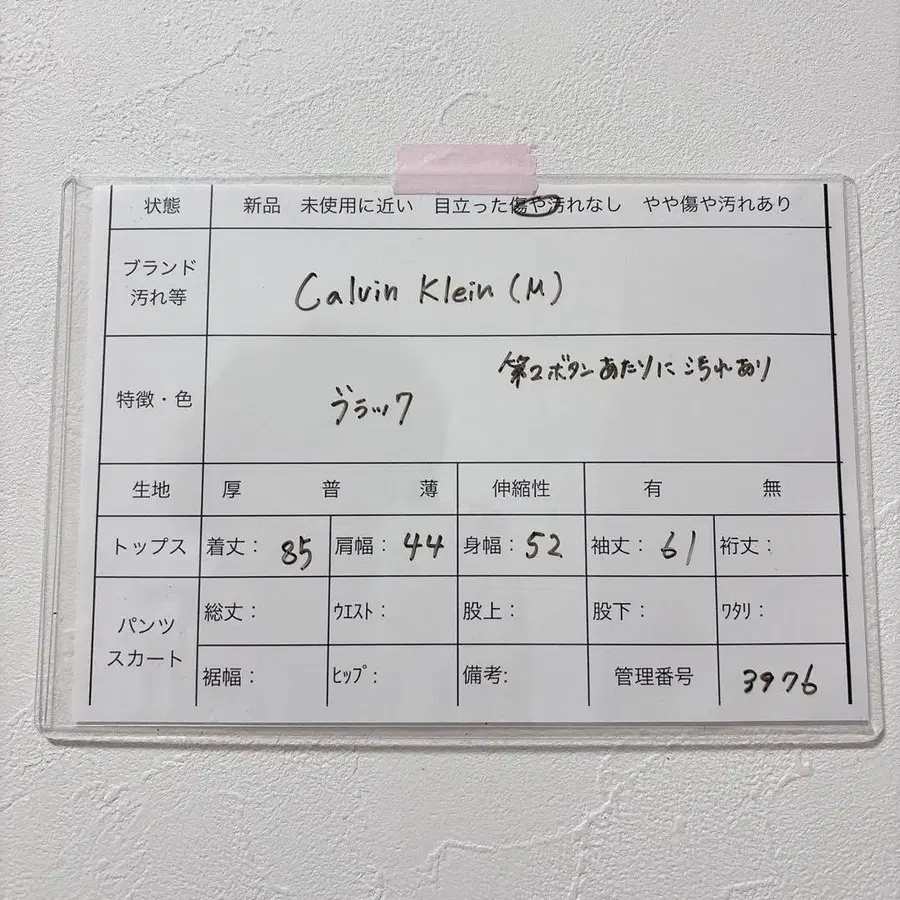 状態 新品 未使用に近い 目立った傷や汚れなし やや傷や汚れあり
ブランド
汚れ等
Calvin Klein (M)
特徴・色
第2ボタンあたりに汚れあり
ブラック
生地 厚 普 薄 伸縮性 有 無
トップス 着丈： 85 肩幅： 44 身幅： 52 袖丈： 61 裄丈：
パンツ
スカート
総丈： ｳｴｽﾄ： 股上： 股下： ﾜﾀﾘ：
裾幅： ﾋｯﾌﾟ： 備考: 管理番号 3976